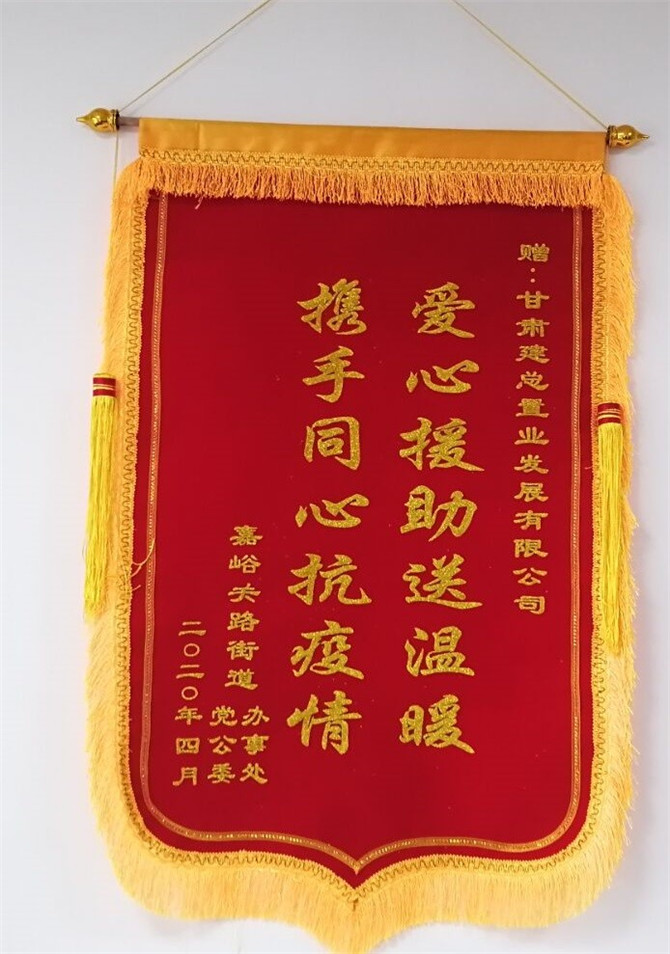 赠:甘肃建总置业发展有限公司
爱心援助送温暖
携手同心抗疫情
嘉峪关路街道
办事处
党公委
二〇二〇年四月